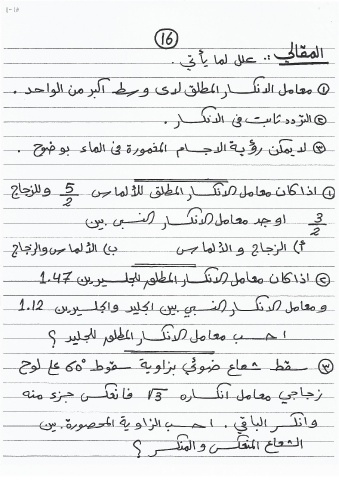 ١-١٥
(16)
المقالي :. علل لما يأتي .
① معامل الانكسار المطلق لأى وسط أكبر من الواحد .
② التردد ثابت فى الانكسار .
③ لا يمكن رؤية الاجسام المغمورة فى الماء بوضوح .
① اذا كان معامل الانكسار المطلق للألماس 5/2 وللزجاج
3/2 اوجد معامل الانكسار النسبى بين
أ) الزجاج والألماس ب) الألماس والزجاج
② اذا كان معامل الانكسار المطلق للجلسرين 1.47
ومعامل الانكسار النسبي بين الجليد والجلسرين 1.12
احسب معامل الانكسار المطلق للجليد ؟
③ سقط شعاع ضوئي بزاوية سقوط 60° على لوح
زجاجي معامل انكساره √3 فانعكس جزء منه
وانكسر الباقي . احسب الزاوية المحصورة بين
الشعاع المنعكس والمنكسر ؟